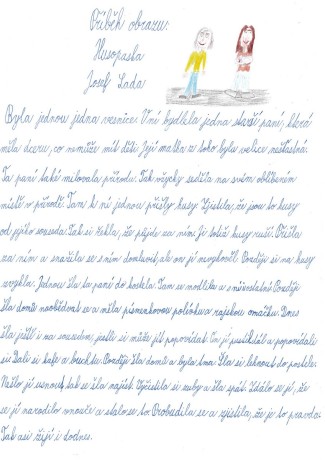 Příběh obrazu:
Husopaska
Josef Lada
Byla jednou jedna vesnice. V ní bydlela jedna starší paní, která
měla dceru, co nemůže mít děti. Její matka z toho byla velice nešťastná.
Ta paní také milovala přírodu. Tak vždycky seděla na svém oblíbeném
místě v přírodě. Tam k ní jednou přišly husy. Zjistila, že jsou to husy
od jejího souseda. Tak si řekla, že půjde za ním. Ji totiž husy ruší. Přišla
za ním a snažila se s ním domluvit, ale on jí nevyhověl. Později si na husy
zvykla. Jednou šla ta paní do kostela. Tam se modlila a Později
šla domů naobědvat se a měla písmenkovou polévku a rajskou omáčku. Dnes
šla ještě i na sousedem, jestli si může jít popovídat. On jí pustil dál a popovídali
si. Dali si kafe a buchtu. Později šla domů a byla tma. Šla si lehnout do postele.
Nešlo jí usnout, tak se šla najíst. Vyčistila si zuby a šla spát. Zdálo se jí, že
se jí narodilo vnouče a stalo se to. Probudila se a zjistila, že je to pravda.
Tak asi žijí i dodnes.